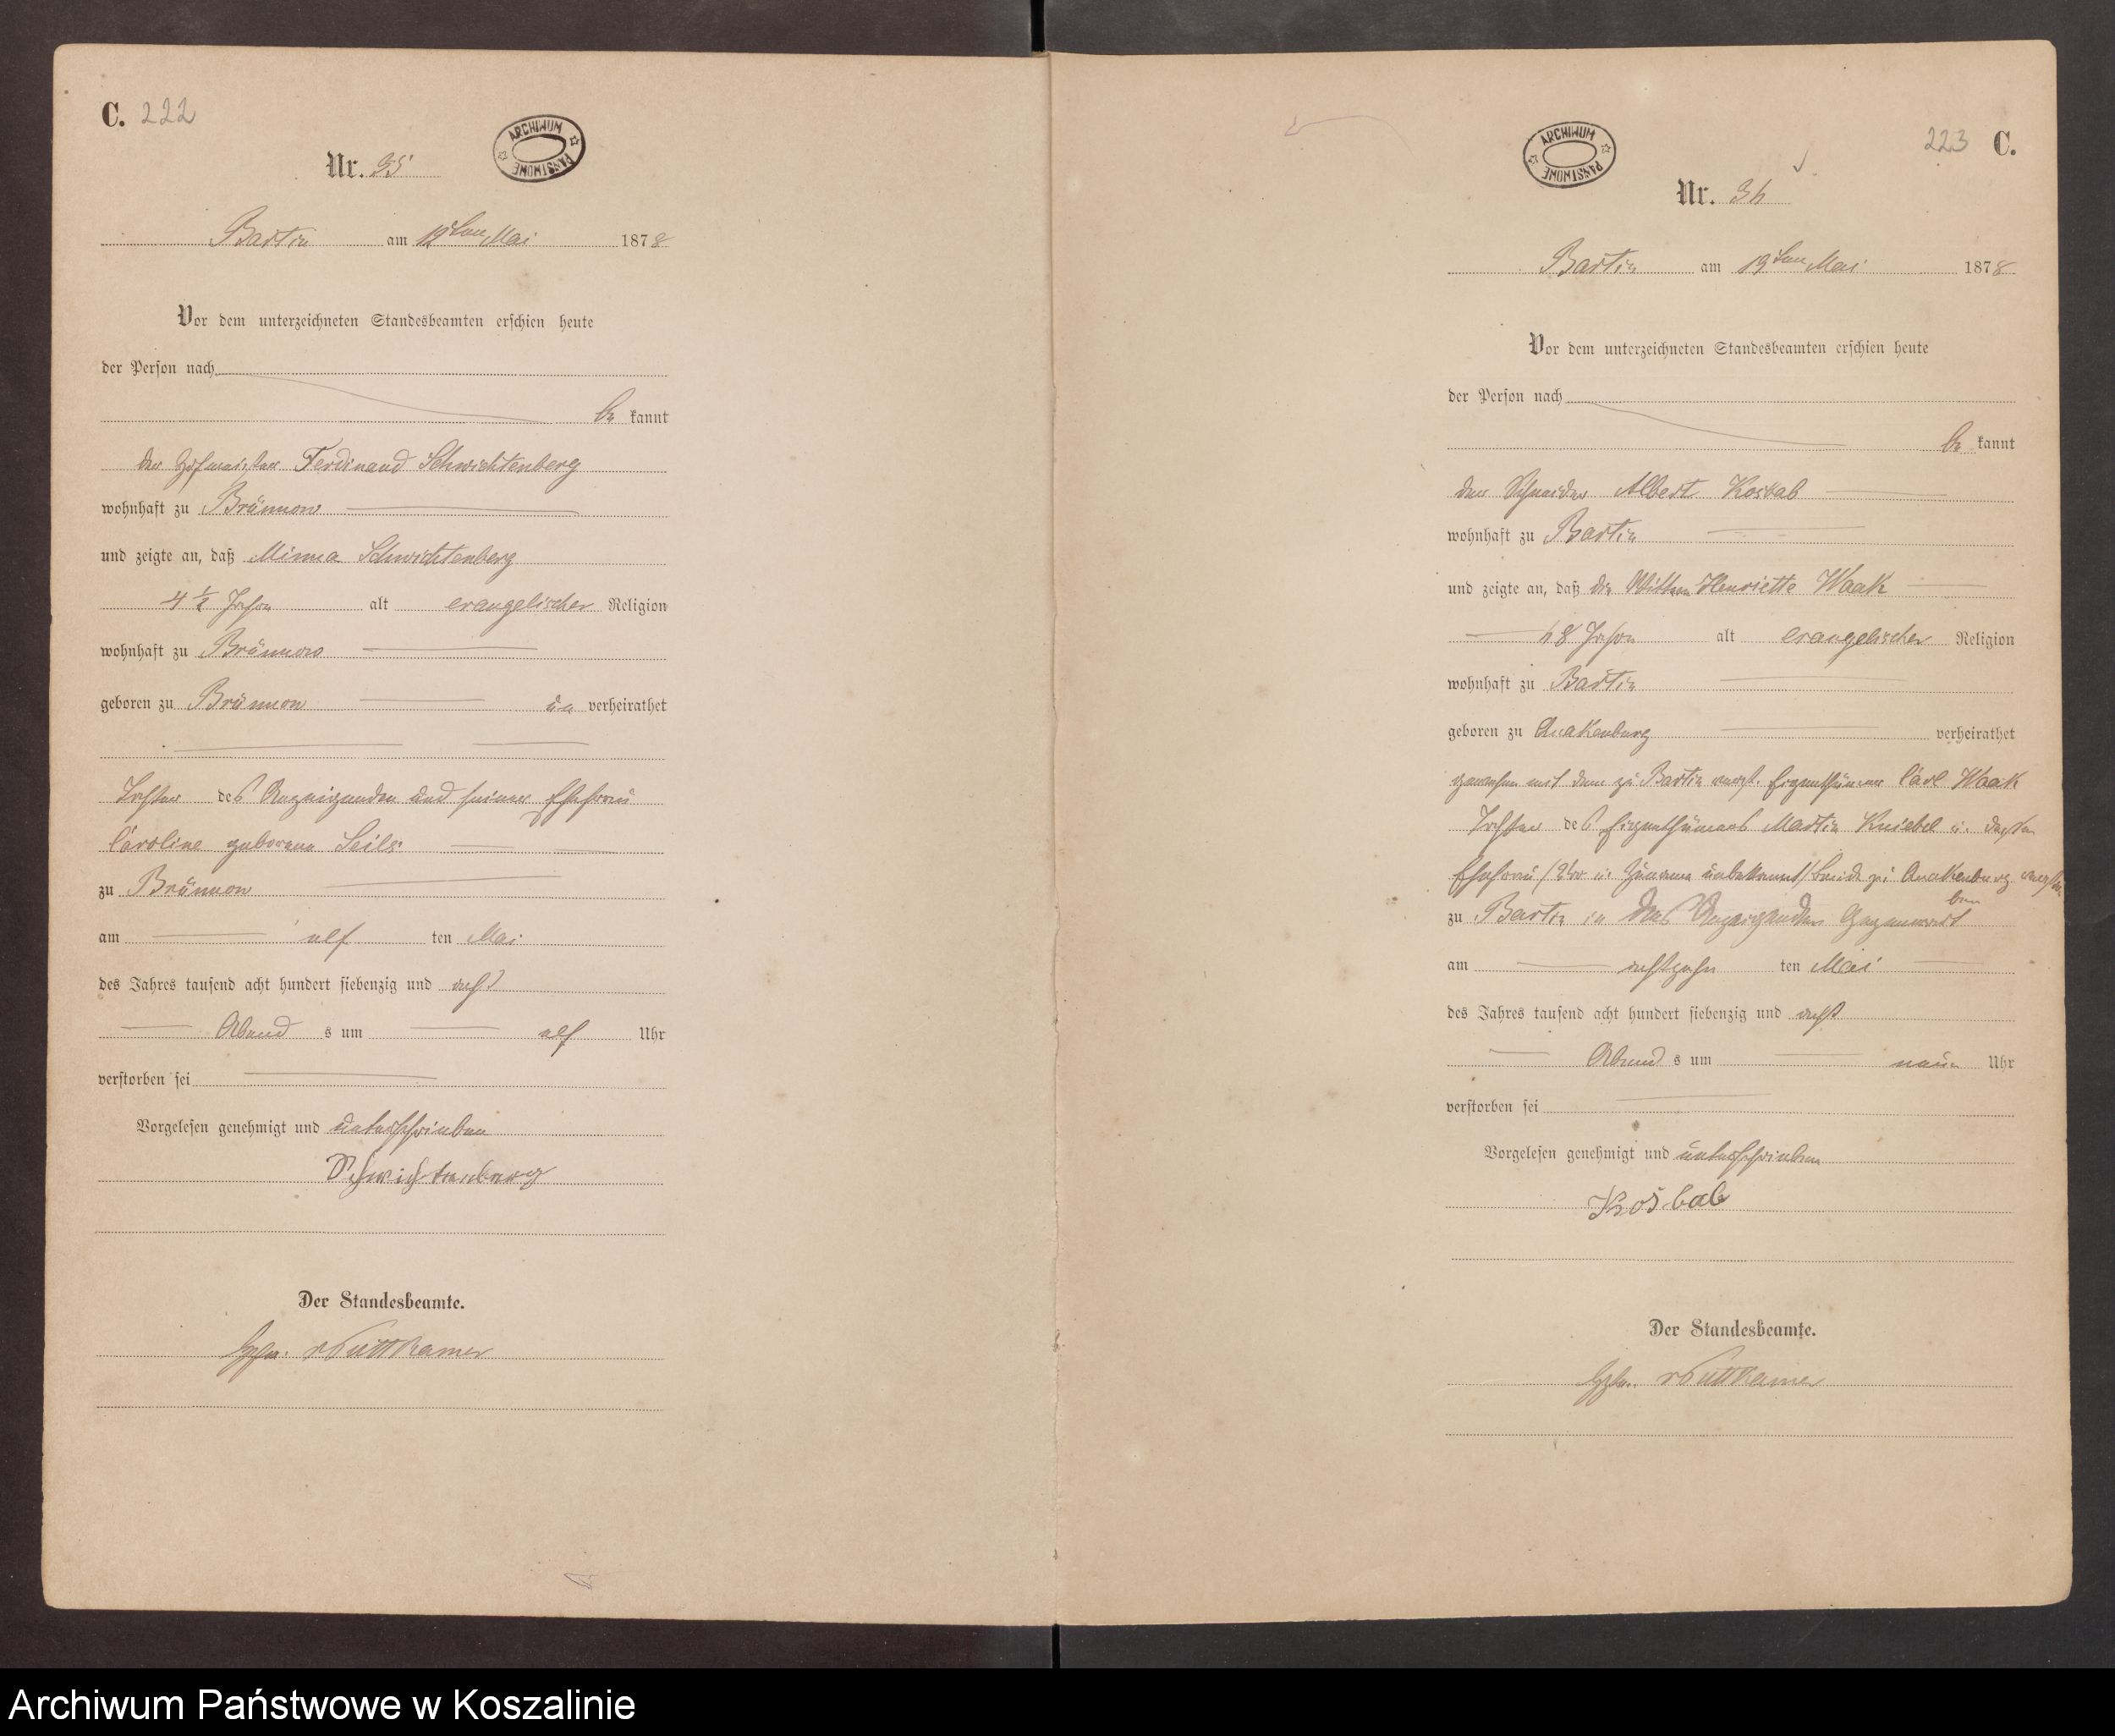 C. 222
ARCHIWUM PAŃSTWOWE
Nr. 35
Bartin am 12ten Mai 1878
Vor dem unterzeichneten Standesbeamten erschien heute
der Person nach
be kannt
der Hofmeister Ferdinand Schwichtenberg
wohnhaft zu Brünnow
und zeigte an, daß Minna Schwichtenberg
4 ½ Jahr alt evangelischer Religion
wohnhaft zu Brünnow
geboren zu Brünnow un verheirathet
Tochter des Anzeigenden und seiner Ehefrau
Caroline geborene Seils
zu Brünnow
am elf ten Mai
des Jahres tausend acht hundert siebenzig und acht
Abend s um elf Uhr
verstorben sei
Vorgelesen genehmigt und unterschrieben
Schwichtenberg
Der Standesbeamte.
vPuttkamer
223 C.
ARCHIWUM PAŃSTWOWE
Nr. 36
Bartin am 19ten Mai 1878
Vor dem unterzeichneten Standesbeamten erschien heute
der Person nach
be kannt
der Schneider Albert Kosbab
wohnhaft zu Bartin
und zeigte an, daß die Wittwe Henriette Waak
68 Jahr alt evangelischer Religion
wohnhaft zu Bartin
geboren zu Quakenburg verheirathet
gewesen mit dem zu Bartin verst. Eigenthümer Carl Waak
Tochter des Eigenthümers Martin Kniebel u. dessen
Ehefrau /Vor u. Zuname unbekannt/ beide zu Quakenburg verstorben
zu Bartin in des Anzeigenden Gegenwart
am achtzehn ten Mai
des Jahres tausend acht hundert siebenzig und acht
Abend s um neun Uhr
verstorben sei
Vorgelesen genehmigt und unterschrieben
Kosbab
Der Standesbeamte.
vPuttkamer
Archiwum Państwowe w Koszalinie